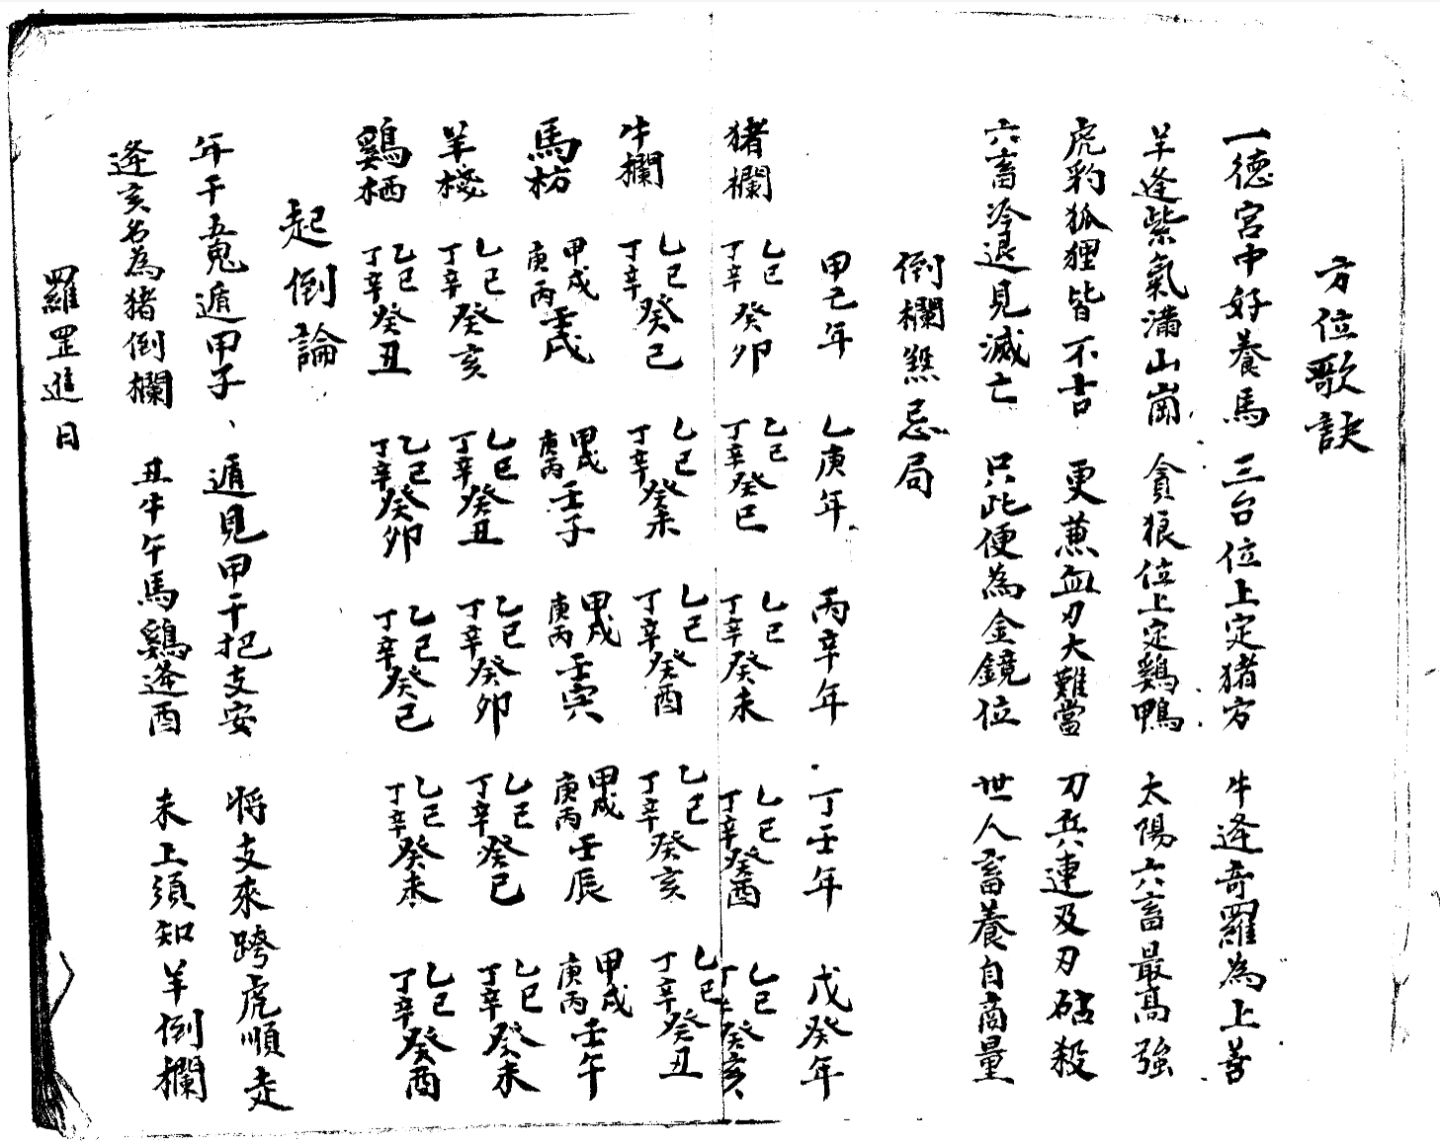 方位歌訣
一德宮中好養馬 三台位上定猪方 牛逢奇羅為上善
羊逢紫氣滿山崗 貪狼位上定鷄鴨 太陽六畜最高強
虎豹狐狸皆不吉 更蕙血刃大難當 刀兵連及刃砧殺
六畜冷退見滅亡 只此便為金鏡位 世人畜養自商量
倒欄煞忌局
甲己年 乙庚年 丙辛年 丁壬年 戊癸年
猪欄 乙己丁辛癸卯 乙己丁辛癸巳 乙己丁辛癸未 乙己丁辛癸酉 乙己丁辛癸亥
牛欄 乙己丁辛癸巳 乙己丁辛癸未 乙己丁辛癸酉 乙己丁辛癸亥 乙己丁辛癸丑
馬枋 甲戊庚丙壬戌 甲戊庚丙壬子 甲戊庚丙壬寅 甲戊庚丙壬辰 甲戊庚丙壬午
羊棧 乙己丁辛癸亥 乙己丁辛癸丑 乙己丁辛癸卯 乙己丁辛癸巳 乙己丁辛癸未
鷄栖 乙己丁辛癸丑 乙己丁辛癸卯 乙己丁辛癸巳 乙己丁辛癸未 乙己丁辛癸酉
起倒論
年干五鬼遁甲子、遁見甲干把支安 將支來跨虎順走
逢亥名為猪倒欄 丑牛午馬鷄逢酉 未上須知羊倒欄
羅罡進日